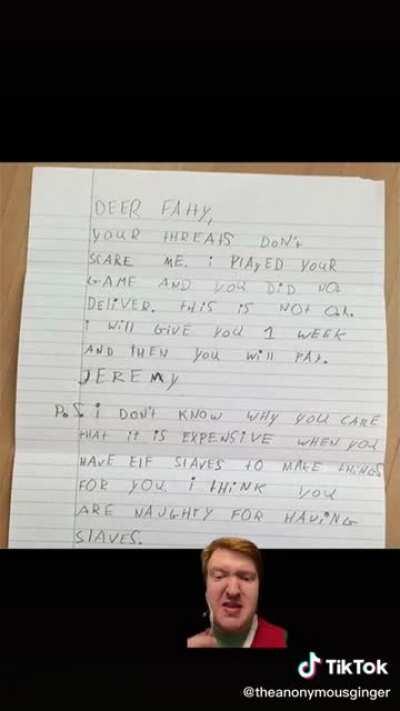 DEER FATTY,
YOUR THREATS DON't
SCARE ME. i PlAyED YOUR
GAME AND YOU DiD NOt
DELiVER. tHiS iS NOt Ok.
i Will GiVE YOU 1 WEEK
AND tHEN YOU Will PAY.
JEREMY
P.S i DON't KNOW WHY YOU CARE
tHAt it iS EXPENSiVE WHEN YOU
HAVE ElF SlAVES tO MAKE tHiNGS
FOR YOU. i tHiNK YOU
ARE NAUGHtY FOR HAViNG
SlAVES.
TikTok
@theanonymousginger